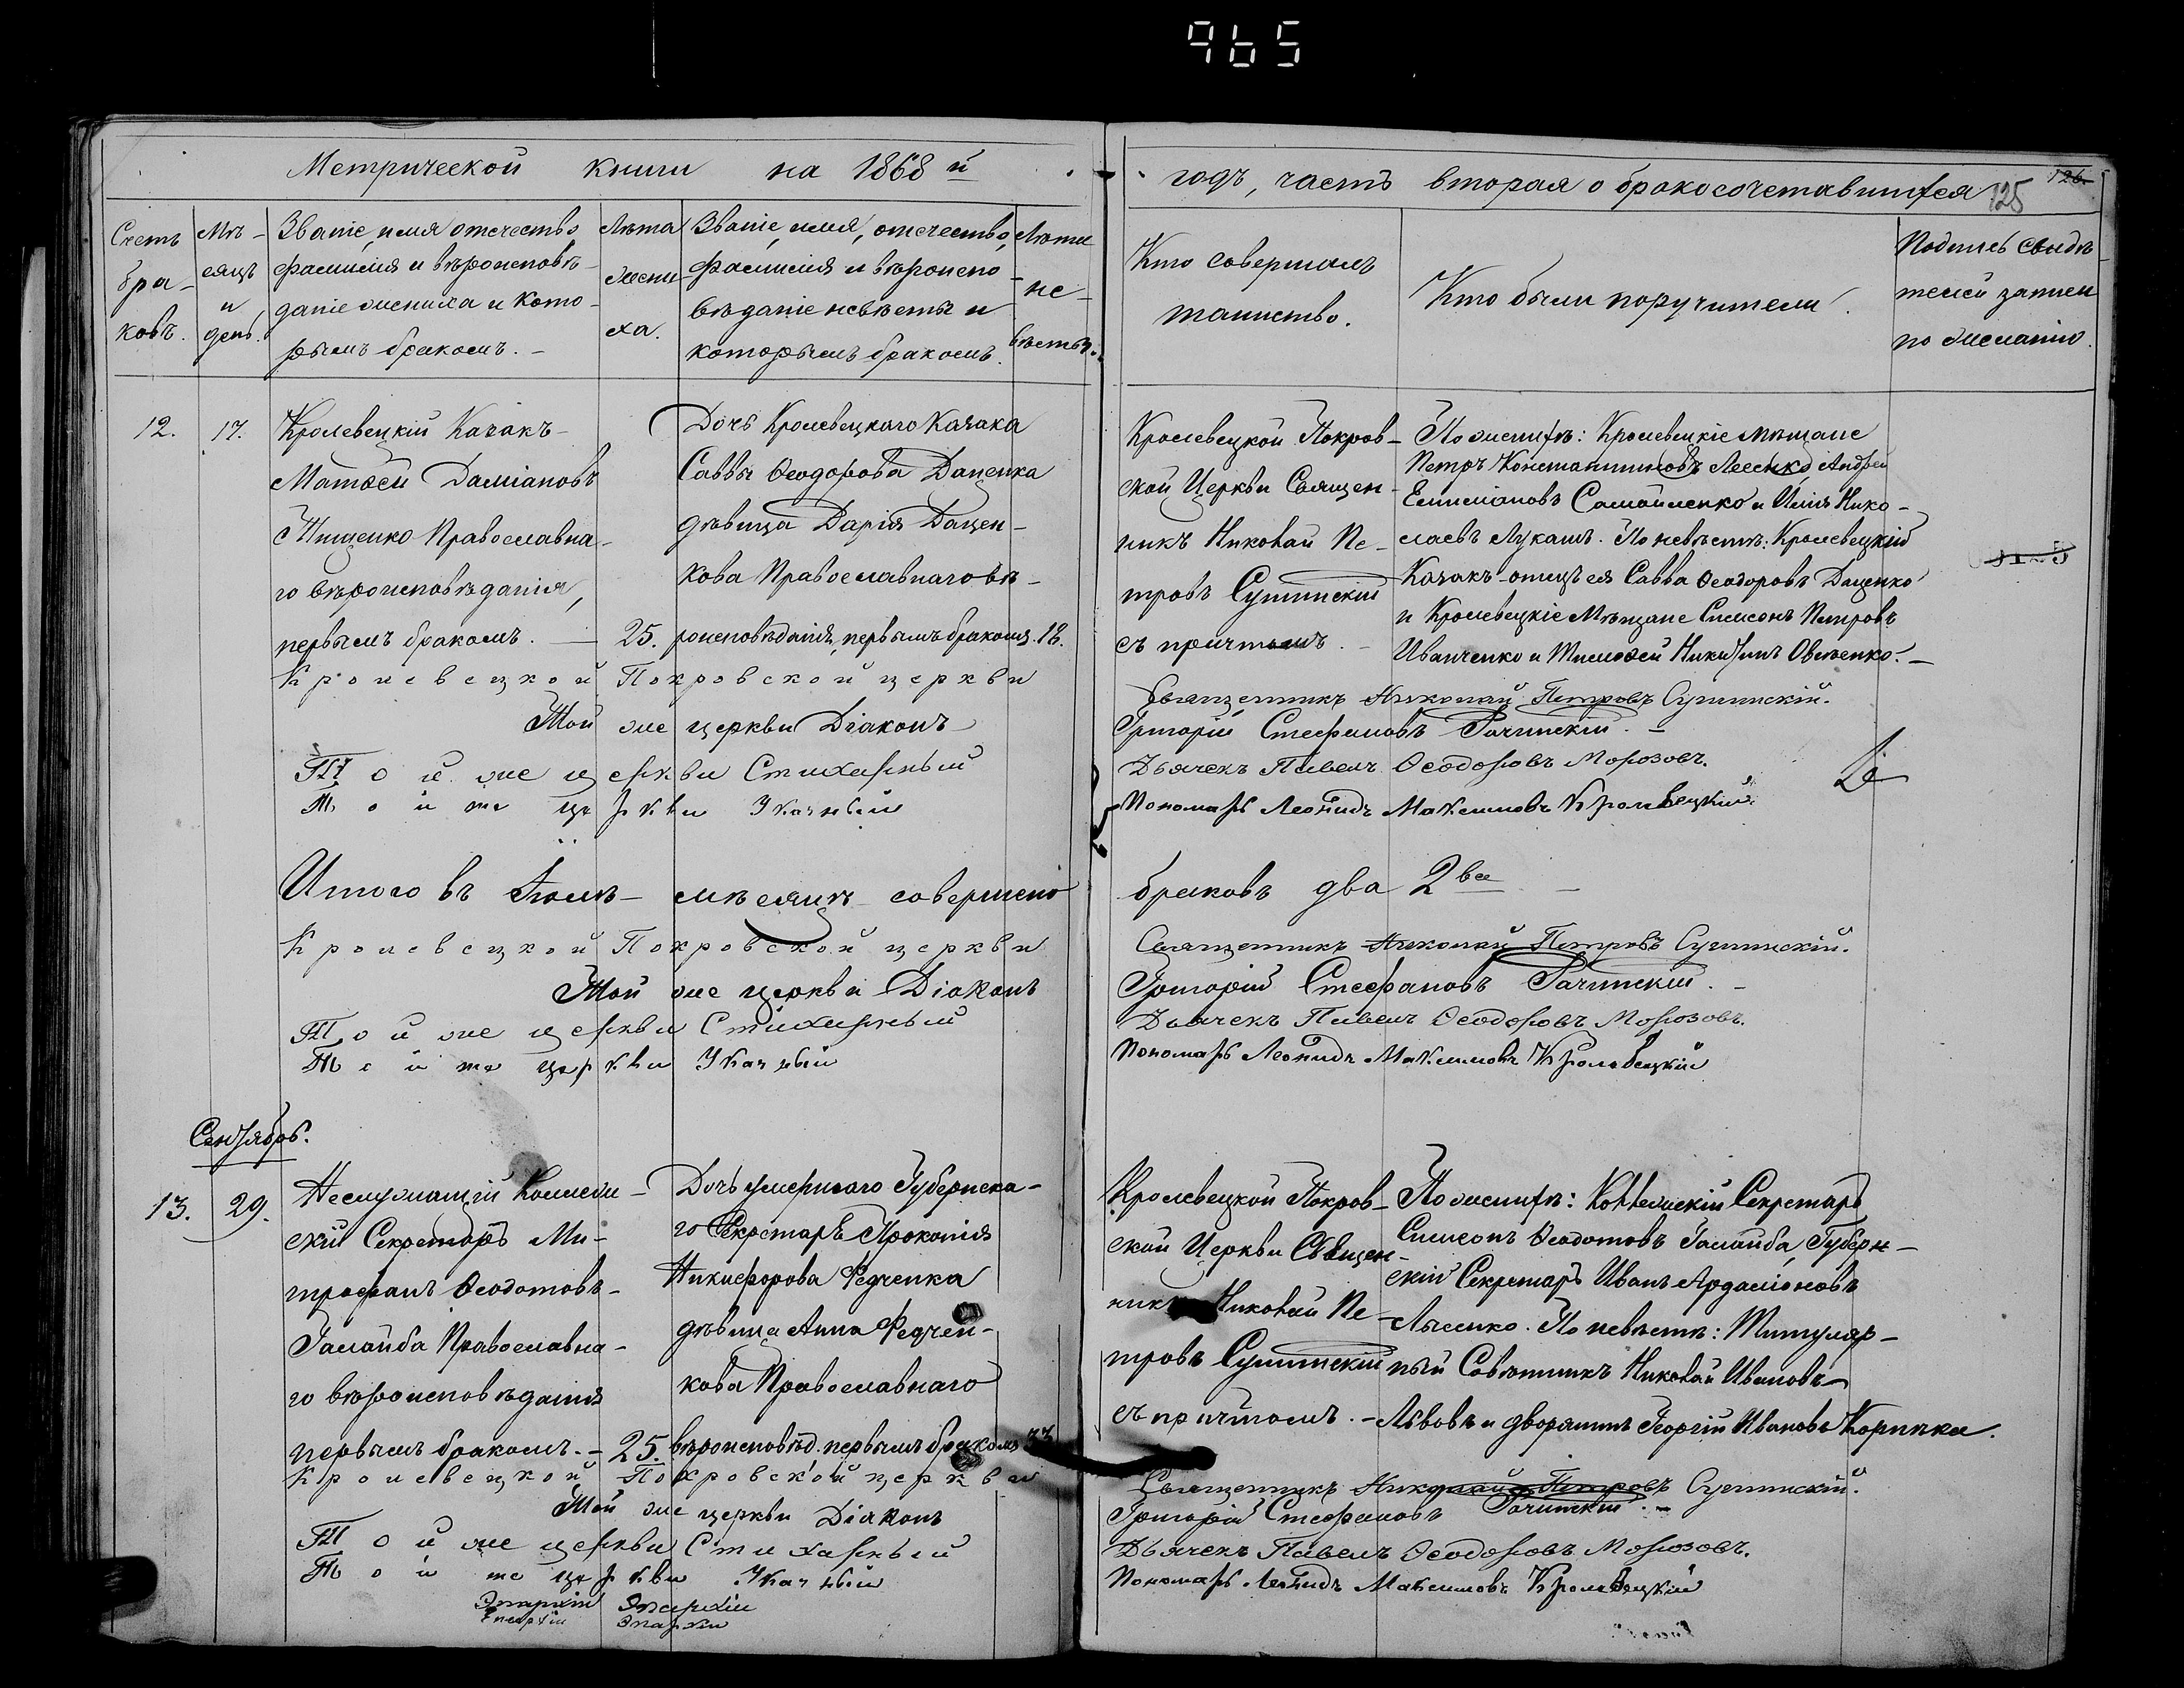 965
Метрической книги на 1868 й
годъ, часть вторая о бракосочетавшихся
125
126.
Счетъ бра-ковъ.
Мѣ-сяцъ и день.
Званіе, имя отечество,
фамилія и вѣроисповѣ-
даніе жениха и кото-
рымъ бракомъ.
Лѣта жени-ха.
Званіе, имя, отечество,
фамилія и вѣроиспо-
вѣданіе невѣсты и
которымъ бракомъ.
Лѣта не-вѣсты.
Кто совершалъ
таинство.
Кто были поручители.
Подпись свидѣ
телей записи
по желанію.
12.
17.
Кролевецкій Казакъ
Матѳей Даміановъ
Тищенко Православна-
го вѣроисповѣданія,
первымъ бракомъ.
25.
Дочь Кролевецкаго Казака
Саввы Ѳеодорова Даценка
дѣвица Дарія Дацен-
кова Православнаго вѣ-
роисповѣданія, первымъ бракомъ.
18.
Кролевецкой Покров-
ской Церкви Священ-
никъ Николай Пе-
тровъ Сулимскій
съ причтомъ.
По женихѣ: Кролевецкіе мѣщане
Петръ Константиновъ Андрей
Емиліановъ Самойленко и Илія Нико-
лаевъ Лукашъ. По невѣстѣ: Кролевецкій
Казакъ отецъ ея Савва Ѳеодоровъ Даценко
и Кролевецкіе Мѣщане Симеонъ Петровъ
Иванченко и Тимоѳей Никитинъ Овсѣенко.
Кролевецкой Покровской церкви
Священникъ Николай Петровъ Сулимскій.
Той же церкви Діаконъ
Григорій Стефановъ Рачинскій.
Той же церкви Стихарный
Дьячекъ Павелъ Ѳеодоровъ Морозовъ.
Той же церкви Указный
Пономарь Леонидъ Максимовъ Кролевецкій.
Итого въ Іюлѣ мѣсяцѣ совершено
браковъ два 2ва
Кролевецкой Покровской церкви
Священникъ Николай Петровъ Сулимскій.
Той же церкви Діаконъ
Григорій Стефановъ Рачинскій.
Той же церкви Стихарный
Дьячекъ Павелъ Ѳеодоровъ Морозовъ.
Той же церкви Указный
Пономарь Леонидъ Максимовъ Кролевецкій
Сентябрь.
13.
29.
Неслужащій Коллеж-
скій Секретарь Ми-
трофанъ Ѳеодотовъ
Галайба Православна-
го вѣроисповѣданія
первымъ бракомъ.
25.
Дочь умершаго Губернска-
го Секретаря Прокопія
Никифорова Федченка
дѣвица Анна Федчен-
кова Православнаго
вѣроисповѣд. первымъ бракомъ
Кролевецкой Покров-
ской Церкви Священ-
никъ Николай Пе-
тровъ Сулимскій
съ причтомъ.
По женихѣ: Коллежскій Секретарь
Симеонъ Ѳеодотовъ Галайба, Губерн-
скій Секретарь Иванъ Ардаліоновъ
Лысенко. По невѣстѣ: Титуляр-
ный Совѣтникъ Николай Ивановъ
Львовъ и дворянинъ Георгій Ивановъ
Кролевецкой Покровской церкви
Священникъ Николай Петровъ Сулимскій.
Той же церкви Діаконъ
Григорій Стефановъ Рачинскій.
Той же церкви Стихарный
Дьячекъ Павелъ Ѳеодоровъ Морозовъ.
Той же церкви Указный
Пономарь Леонидъ Максимовъ Кролевецкій
Епархіи